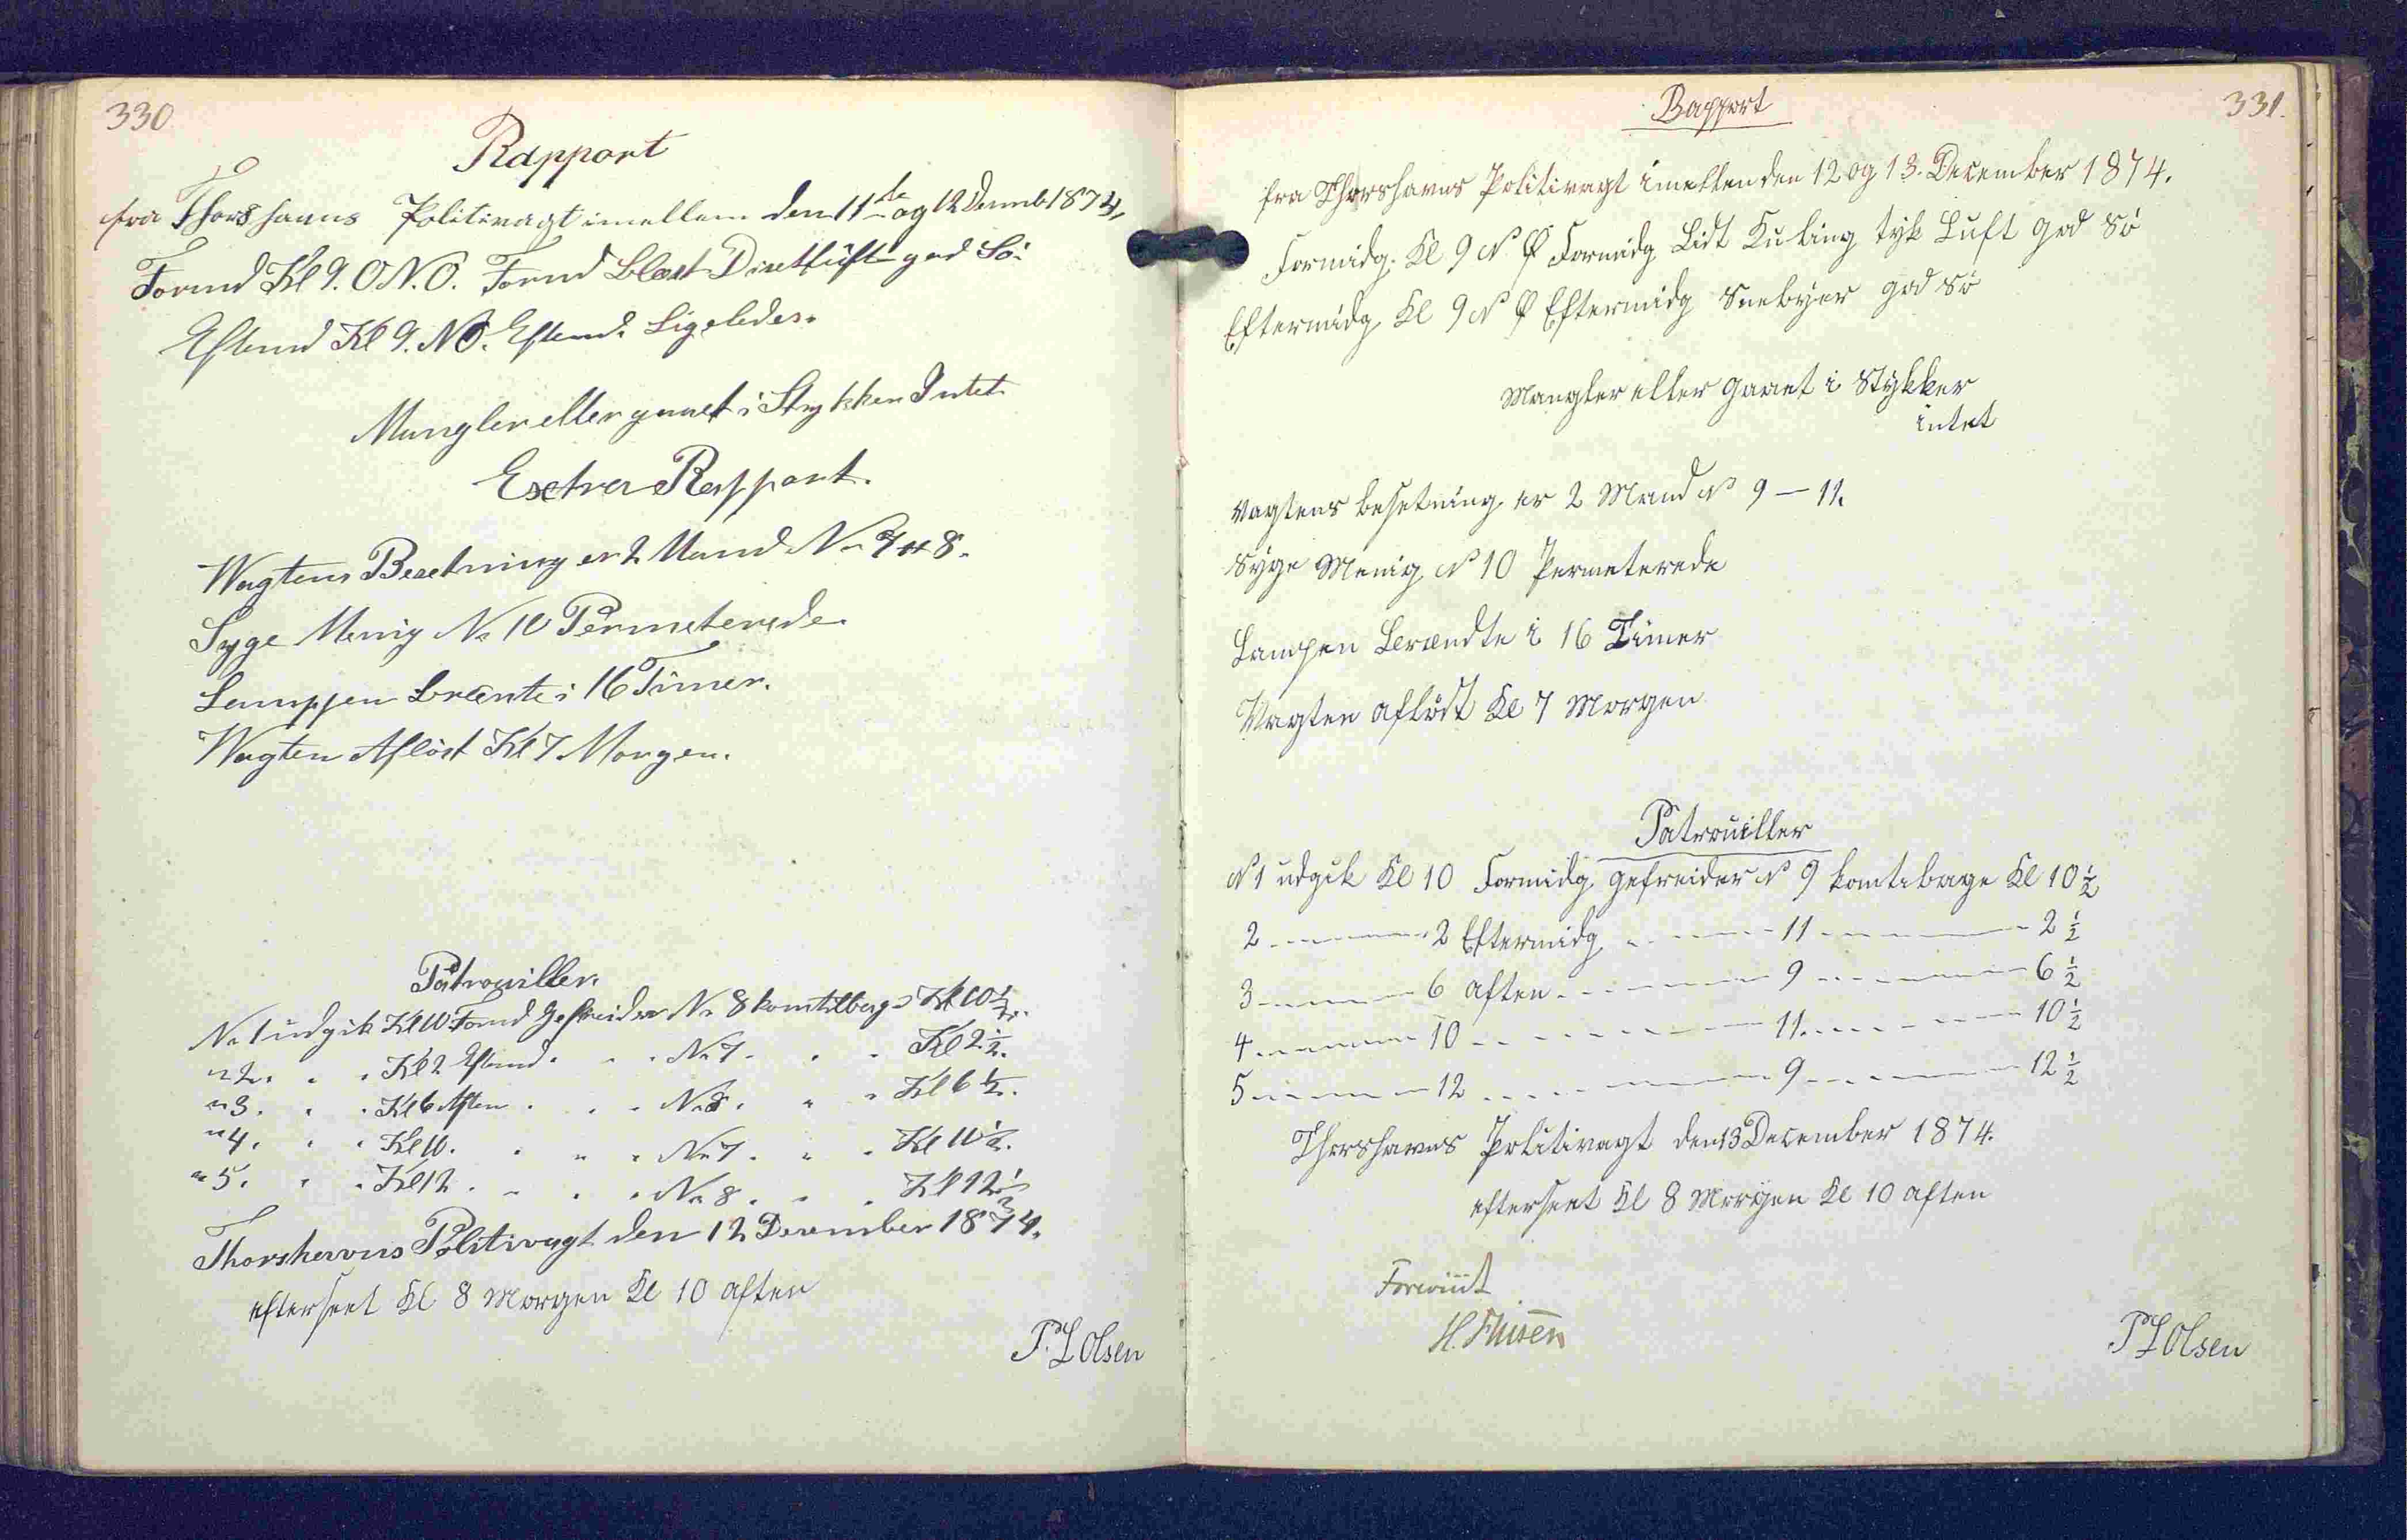 330
Rapport
fra Thorshavns Politivagt imellem den 11te og 12 Decemb 1874,
Formd Kl 9. O.N.O. Formd Blæst Disetluft god Sö.
Eftemd Kl 9. NO. Eftemd. Ligeledes.
Mangler eller gaaet i Stykker Intet
Extra Rapport.
Wagtens Besetning er 2 Mand No 7 + 8.
Syge Menig No 10 Permeterede
Lamppen brænte i 16 Timer.
Wagten Aflöst Kl 7 Morgen.
Patrouiller.
No 1 udgik Kl 10 Formd Gefreider No 8 komtilbage Kl 10 1/2.
" 2. " . Kl 2 Eftemd. . . . No 7 . . . Kl 2 1/2.
" 3. . . Kl 6 Aften . . . No 8. " " Kl 6 1/2.
" 4. . . Kl 10. . " . No 7. " . Kl 10 1/2.
" 5. . . Kl 12. . . . No 8. . . Kl 12 1/2
Thorshavns Politivagt den 12 December 1874.
efterseet Kl 8 Morgen Kl 10 aften
P. L Olsen
331.
Rapport
fra Thorshavns Politivagt imellen den 12 og 13. December 1874.
Formidg. Kl 9 N Ø Formidg Lidt Kuling tyk Luft god Sö
Eftermidg Kl 9 N Ø Eftermidg Sneebyer god Sö
Mangler eller gaaet i Stykker
intet
Vagtens besetning er 2 Mand No 9 – 11.
Syge Menig No 10 Permeterede
Lampen Brændte i 16 Timer
Vagten aflödt Kl 7 Morgen
Patrouiller
No 1 udgik Kl 10 Formidg gefreider No 9 komtibage Kl 10 1/2
2 ------- 2 Eftermidg ------- 11 ------- 2 1/2
3 ------- 6 aften ------- 9 ------- 6 1/2
4 ------- 10 ------- 11 ------- 10 1/2
5 ------- 12 ------- 9 ------- 12 1/2
Thorshavns Politivagt den 13 December 1874.
efterseet Kl 8 Morgen Kl 10 aften
Foreviist
P L Olsen